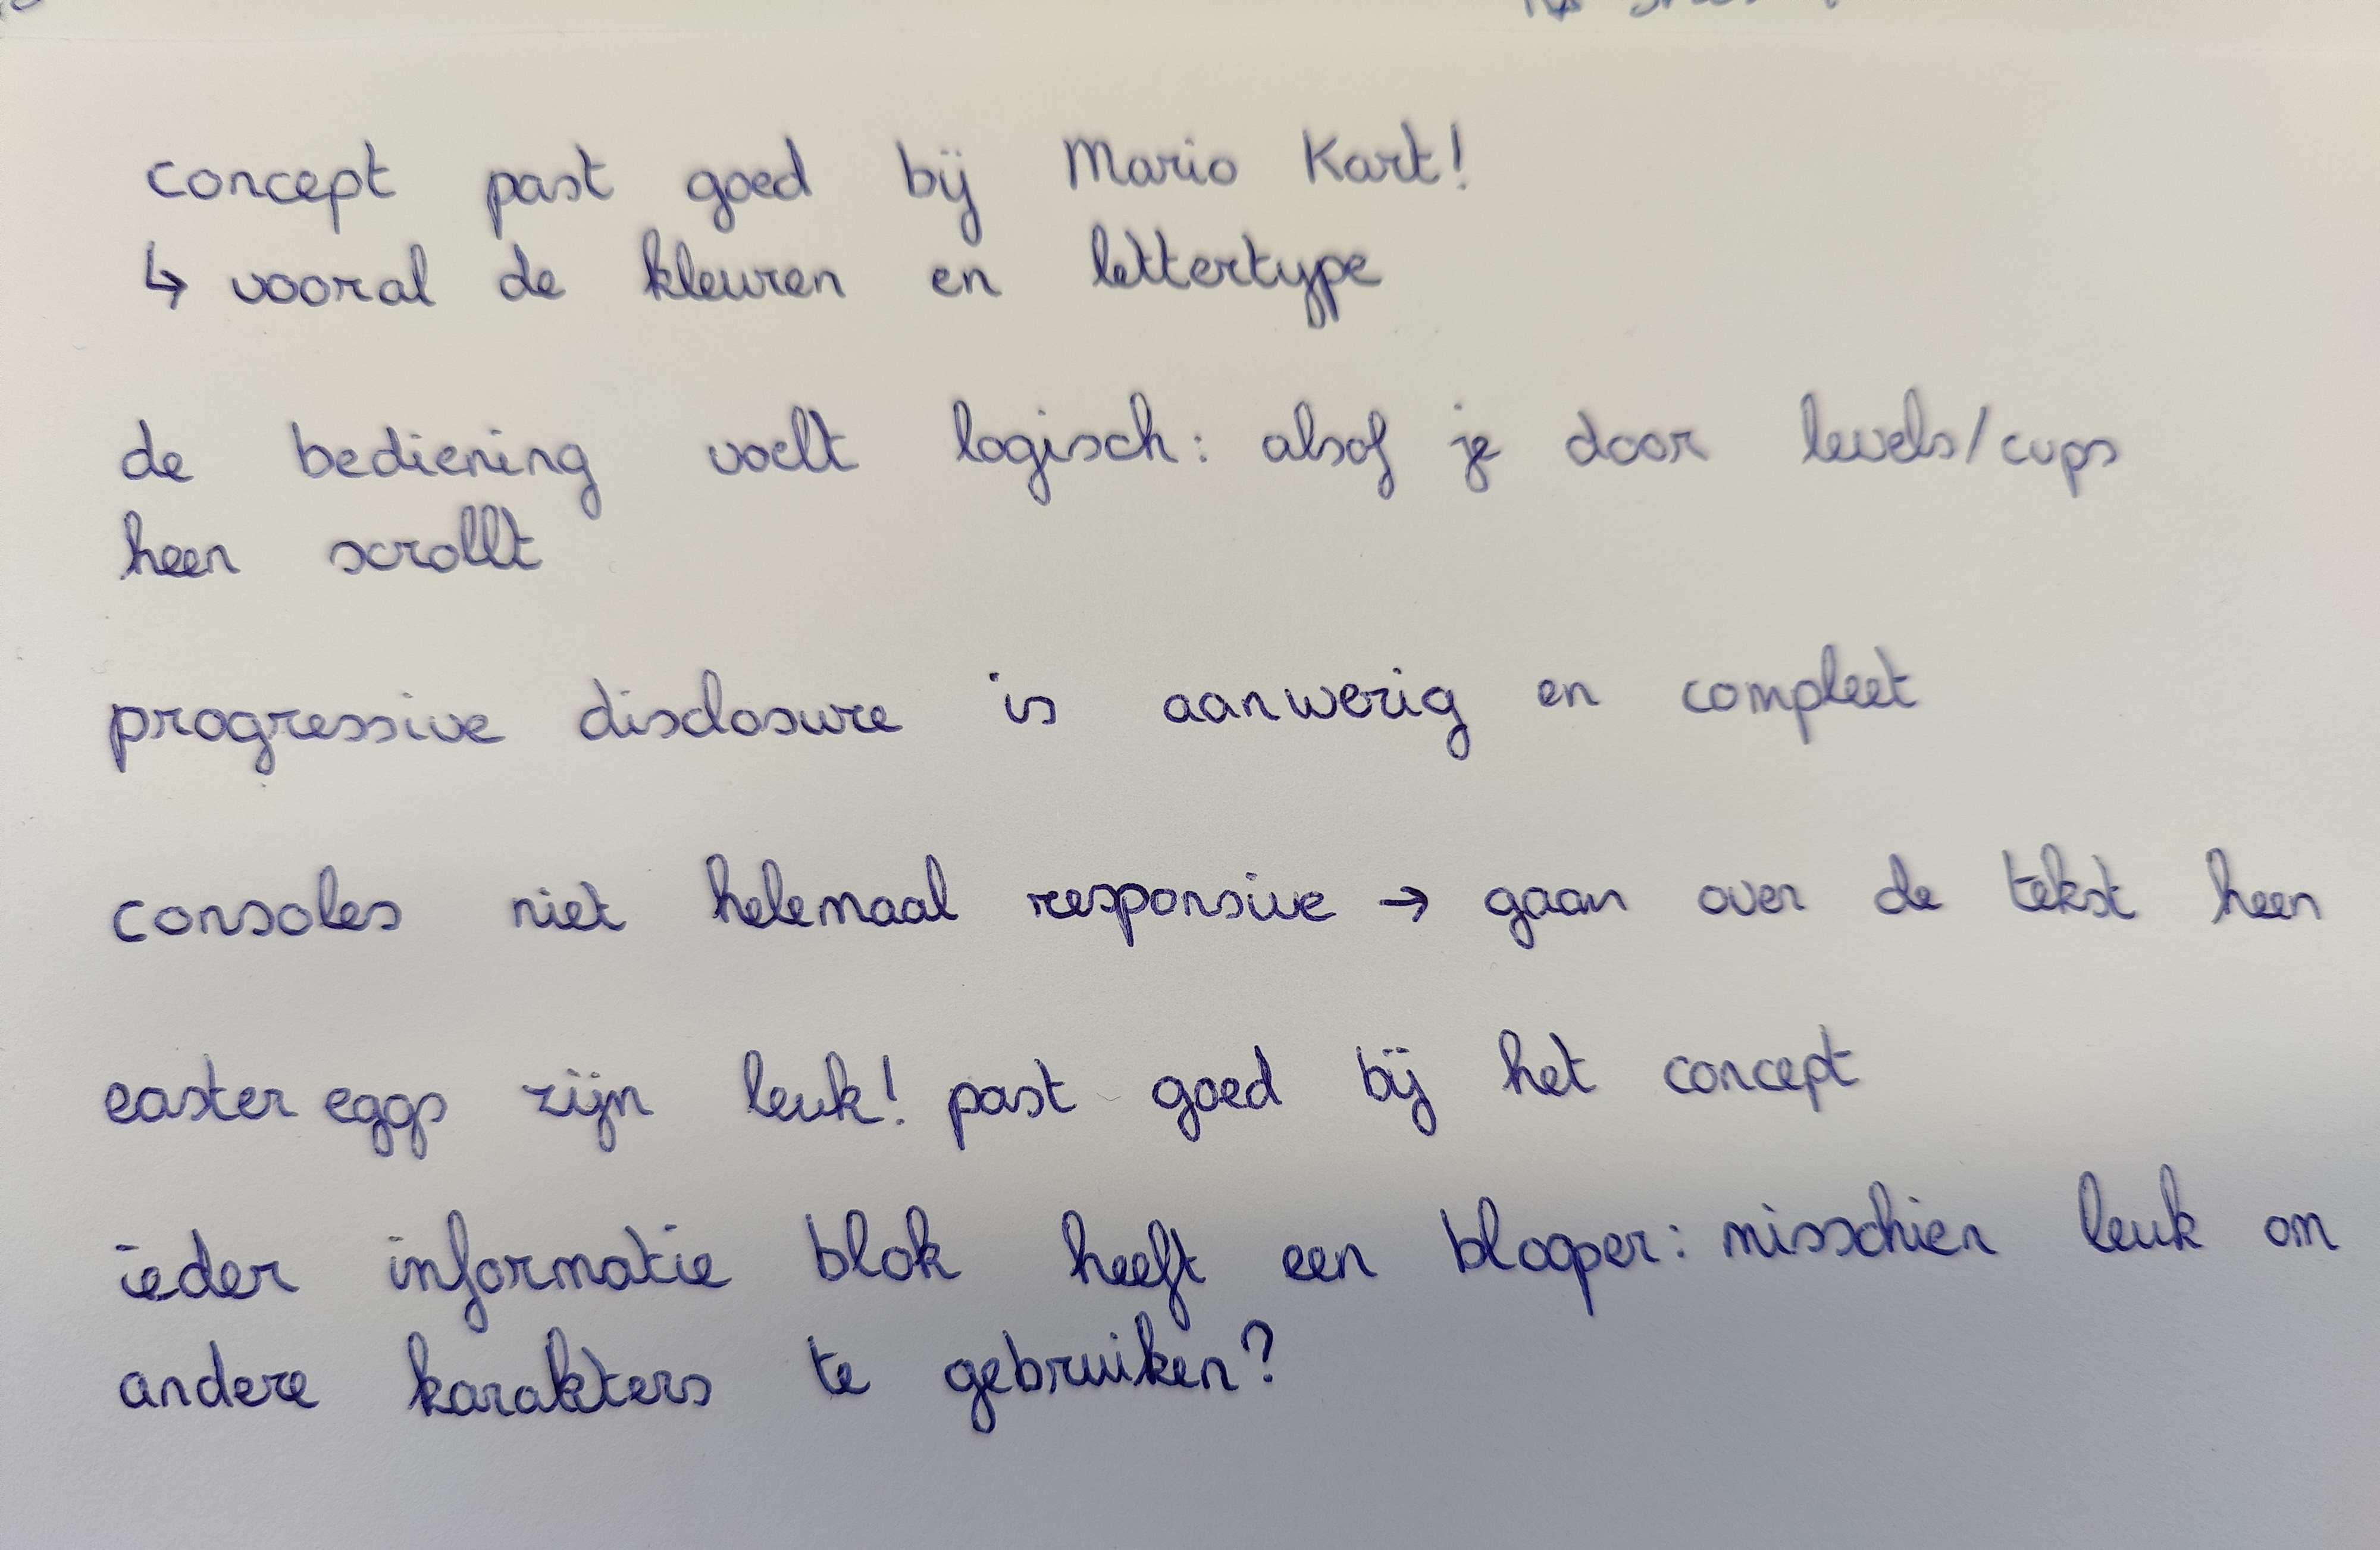 concept past goed bij Mario Kart!
↳ vooral de kleuren en lettertype
de bediening voelt logisch: alsof je door levels/cups
heen scrollt
progressive disclosure is aanwezig en compleet
consoles niet helemaal responsive → gaan over de tekst heen
easter eggs zijn leuk! past goed bij het concept
ieder informatie blok heeft een blooper: misschien leuk om
andere karakters te gebruiken?